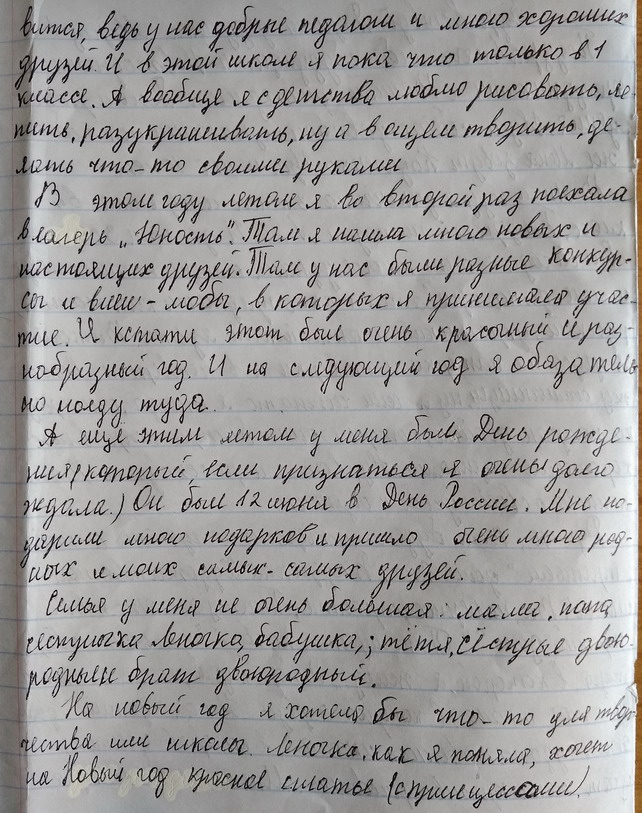 вится, ведь у нас добрые педагоги и много хороших
друзей. И в этой школе я пока что только в 1
классе. А вообще я с детства люблю рисовать, ле-
пить, разукрашивать, ну а в общем творить, де-
лать что-то своими руками
В этом году летом я во второй раз поехала
в лагерь „Юность“. Там я нашла много новых и
настоящих друзей. Там у нас были разные конкур-
сы и в которых я принимала учас-
тие. И кстати этот был очень красочный и раз-
нобразный год. И на следующий год я обязатель
но поеду туда.
А еще этим летом у меня был День рожде-
ния (который, если признаться я очень долго
ждала.) Он был 12 июня в День России. Мне по-
дарили много подарков и пришло очень много род-
ных и моих самых-самых друзей.
Семья у меня не очень большая: мама, папа
сестрычка Леночка, бабушка, тётя, сёстры двою-
родные брат двоюродный.
На новый год я хотела бы что-то для твор-
чества или школы. Леночка, как я поняла, хочет
на Новый год красное платье (с принцессами).